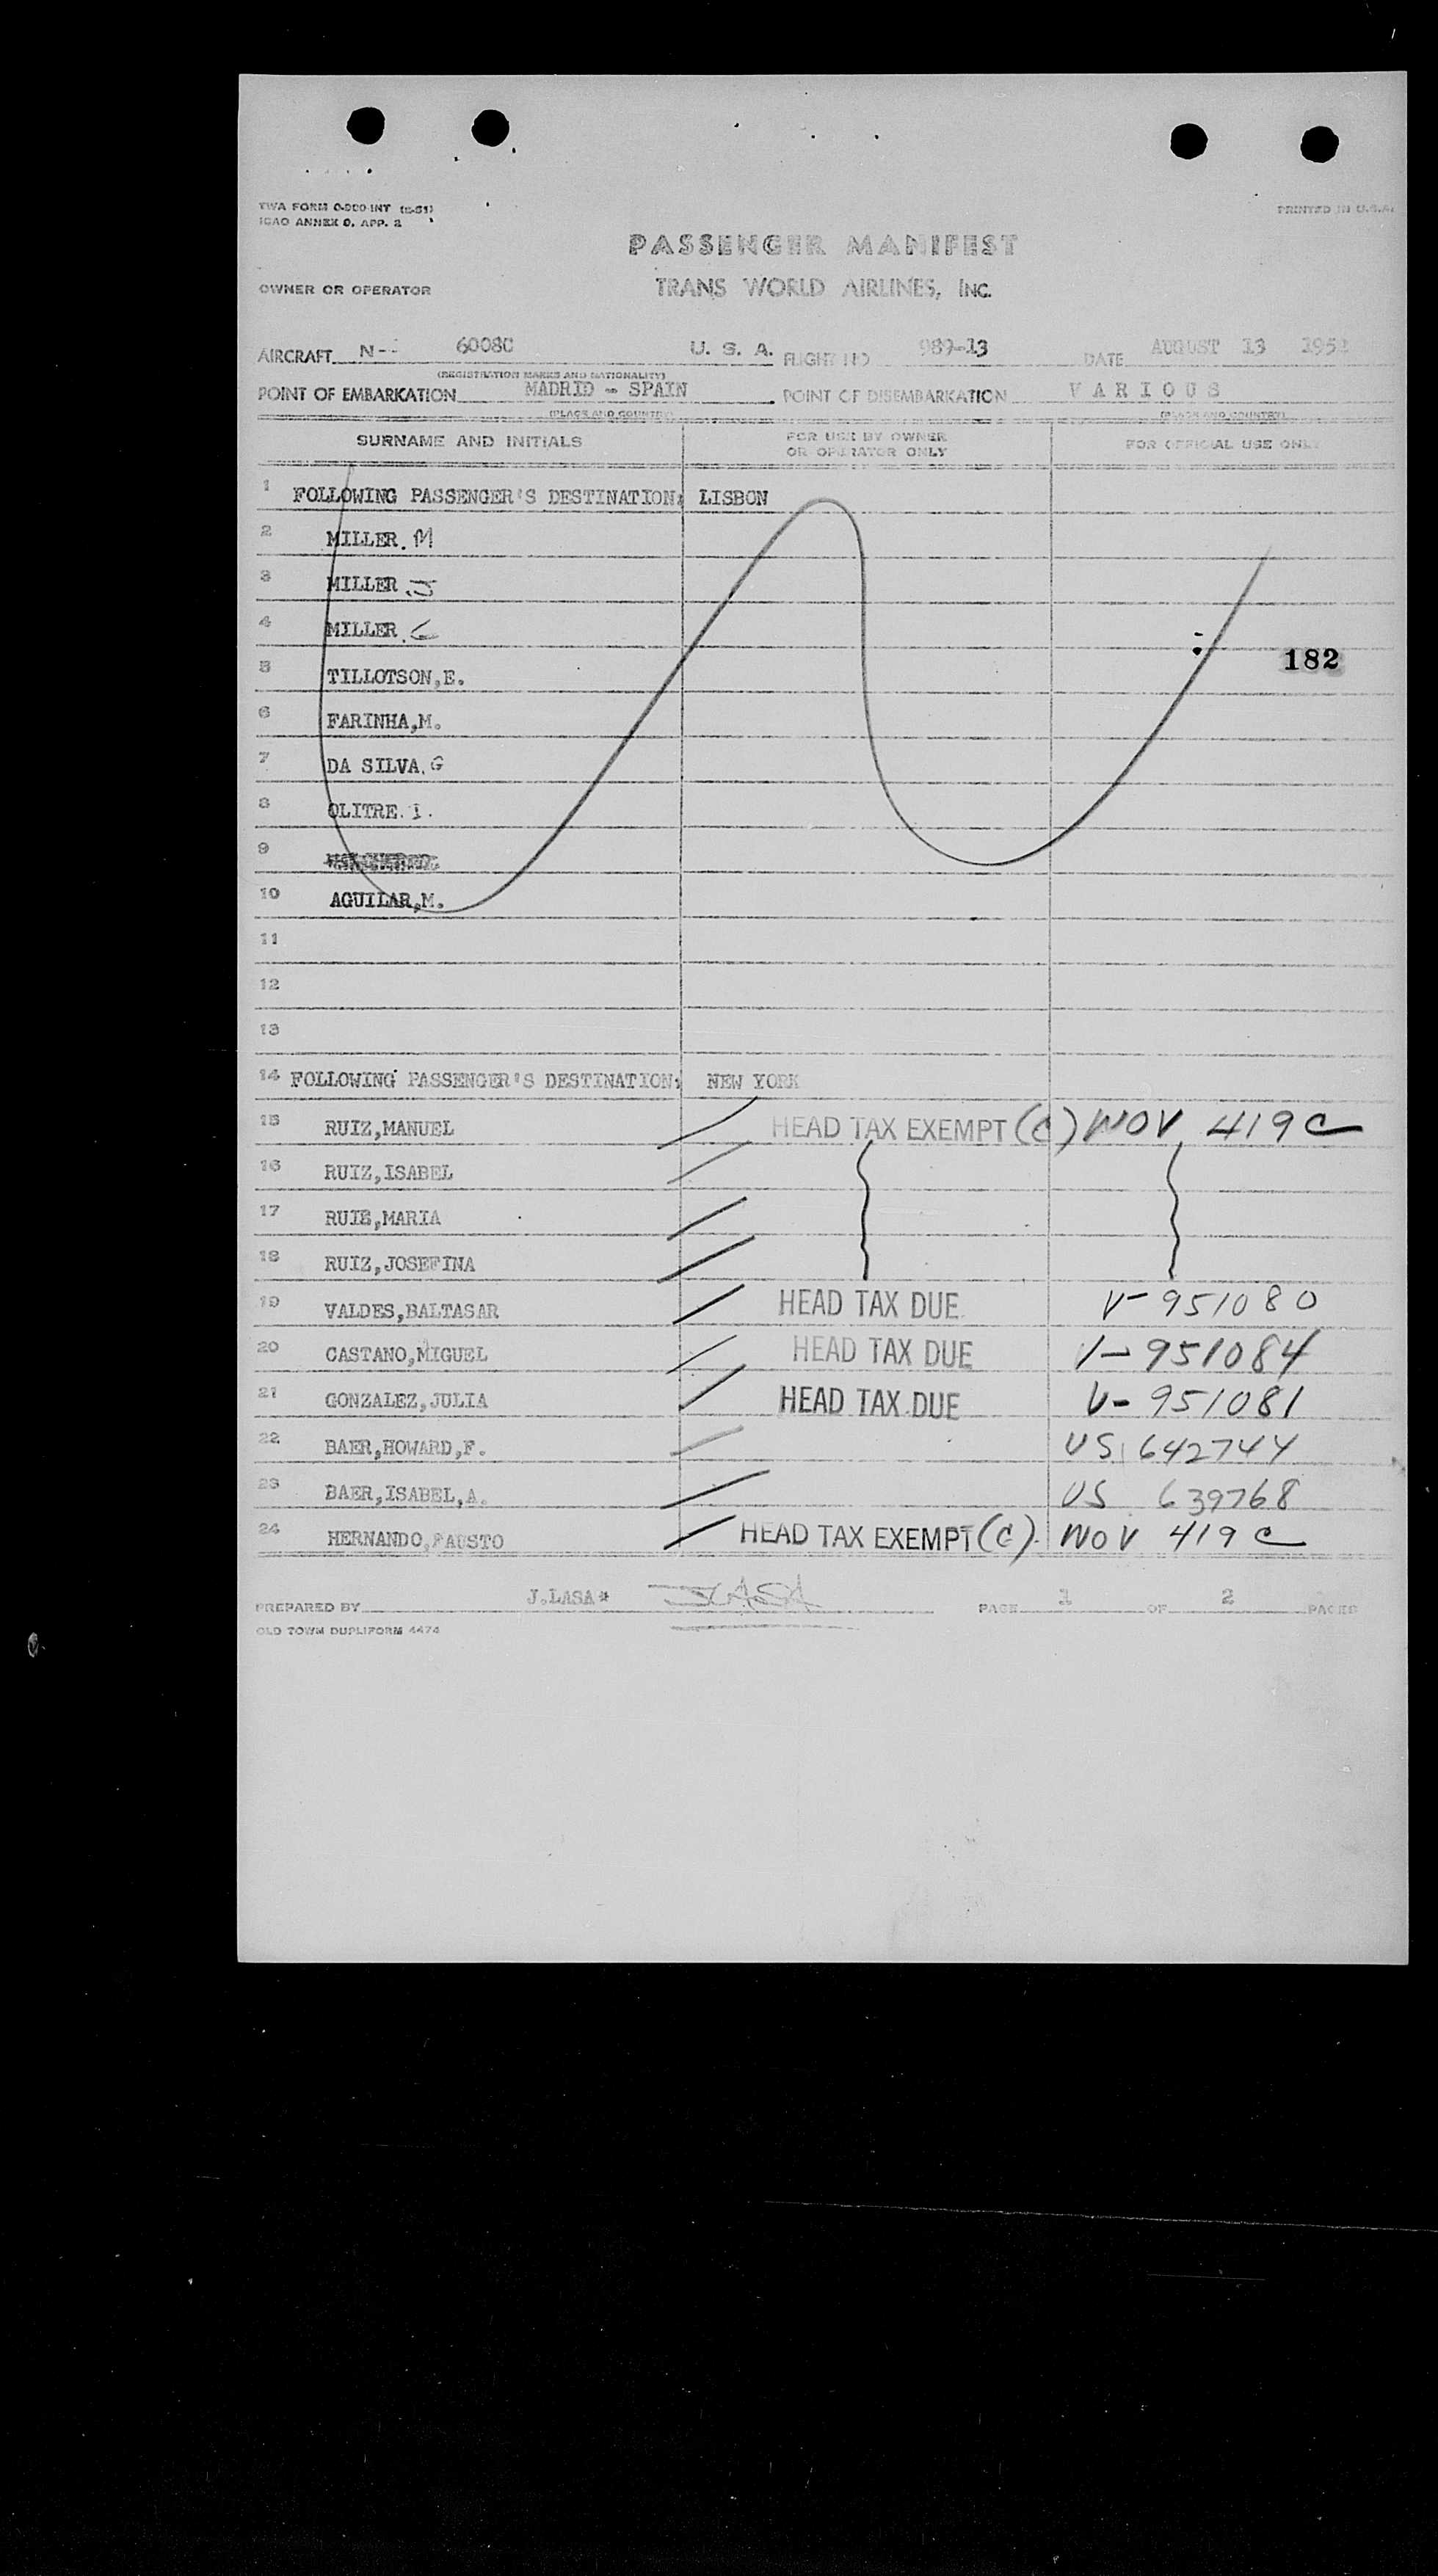 TWA FORM O-900-INT (6-51)
ICAO ANNEX 9, APP. 2
PRINTED IN U.S.A.
PASSENGER MANIFEST
OWNER OR OPERATOR
TRANS WORLD AIRLINES, INC.
AIRCRAFT N- 6008C U. S. A. FLIGHT NO 989-13 DATE AUGUST 13 1952
(REGISTRATION MARKS AND NATIONALITY)
POINT OF EMBARKATION MADRID - SPAIN POINT OF DISEMBARKATION V A R I O U S
(PLACE AND COUNTRY) (PLACE AND COUNTRY)
SURNAME AND INITIALS FOR USE BY OWNER OR OPERATOR ONLY FOR OFFICIAL USE ONLY
1 FOLLOWING PASSENGER'S DESTINATION: LISBON
2 MILLER. M
3 MILLER. J
4 MILLER. C
182
5 TILLOTSON,E.
6 FARINHA,M.
7 DA SILVA. G
8 OLITRE. I.
9
10 AGUILAR,M.
11
12
13
14 FOLLOWING PASSENGER'S DESTINATION: NEW YORK
15 RUIZ,MANUEL HEAD TAX EXEMPT (C) NOV 419C
16 RUIZ,ISABEL
17 RUIZ,MARIA
18 RUIZ,JOSEFINA
19 VALDES,BALTASAR HEAD TAX DUE V-951080
20 CASTANO,MIGUEL HEAD TAX DUE V-951084
21 GONZALEZ,JULIA HEAD TAX DUE V-951081
22 BAER,HOWARD,F. US 642744
23 BAER,ISABEL,A. US 639768
24 HERNANDO,FAUSTO HEAD TAX EXEMPT (C) NOV 419C
PREPARED BY J.LASA* JLASA PAGE 1 OF 2 PAGES
OLD TOWN DUPLIFORM 4474